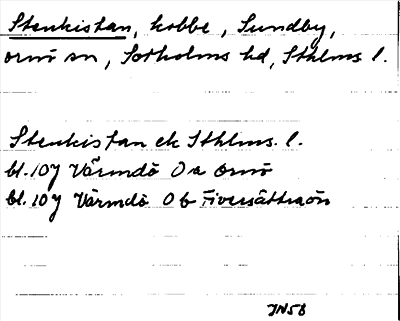 Stenkistan, kobbe, Sundby,
Ornö sn, Sotholms hd, Sthlms l.
Stenkistan ek Sthlms. l.
bl. 107 Värmdö Oa Ornö
bl. 107 Värmdö Ob Fiversättraön
JN58